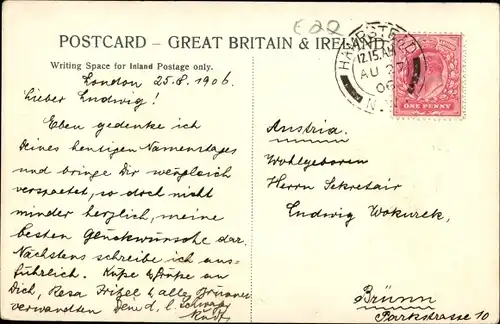 E20
POSTCARD - GREAT BRITAIN & IRELAND
Writing Space for Inland Postage only.
London 25.8.1906.
Lieber Ludwig!
Eben gedenke ich
Deines heutigen Namenstages
und bringe Dir wenngleich
verspaetet, so doch nicht
minder herzlich, meine
besten Glückwünsche dar.
Nächstens schreibe ich aus-
führlich. Küsse & Grüsse an
Dich, Resa & alle Brünner
verwandten Dein d. l.
HAMPSTEAD
12.15. AM
AU
06
N.W
ONE PENNY
Austria.
Wohlgeboren
Herrn Sekretair
Ludwig Wokurek,
Brünn
Parkstrasse 10